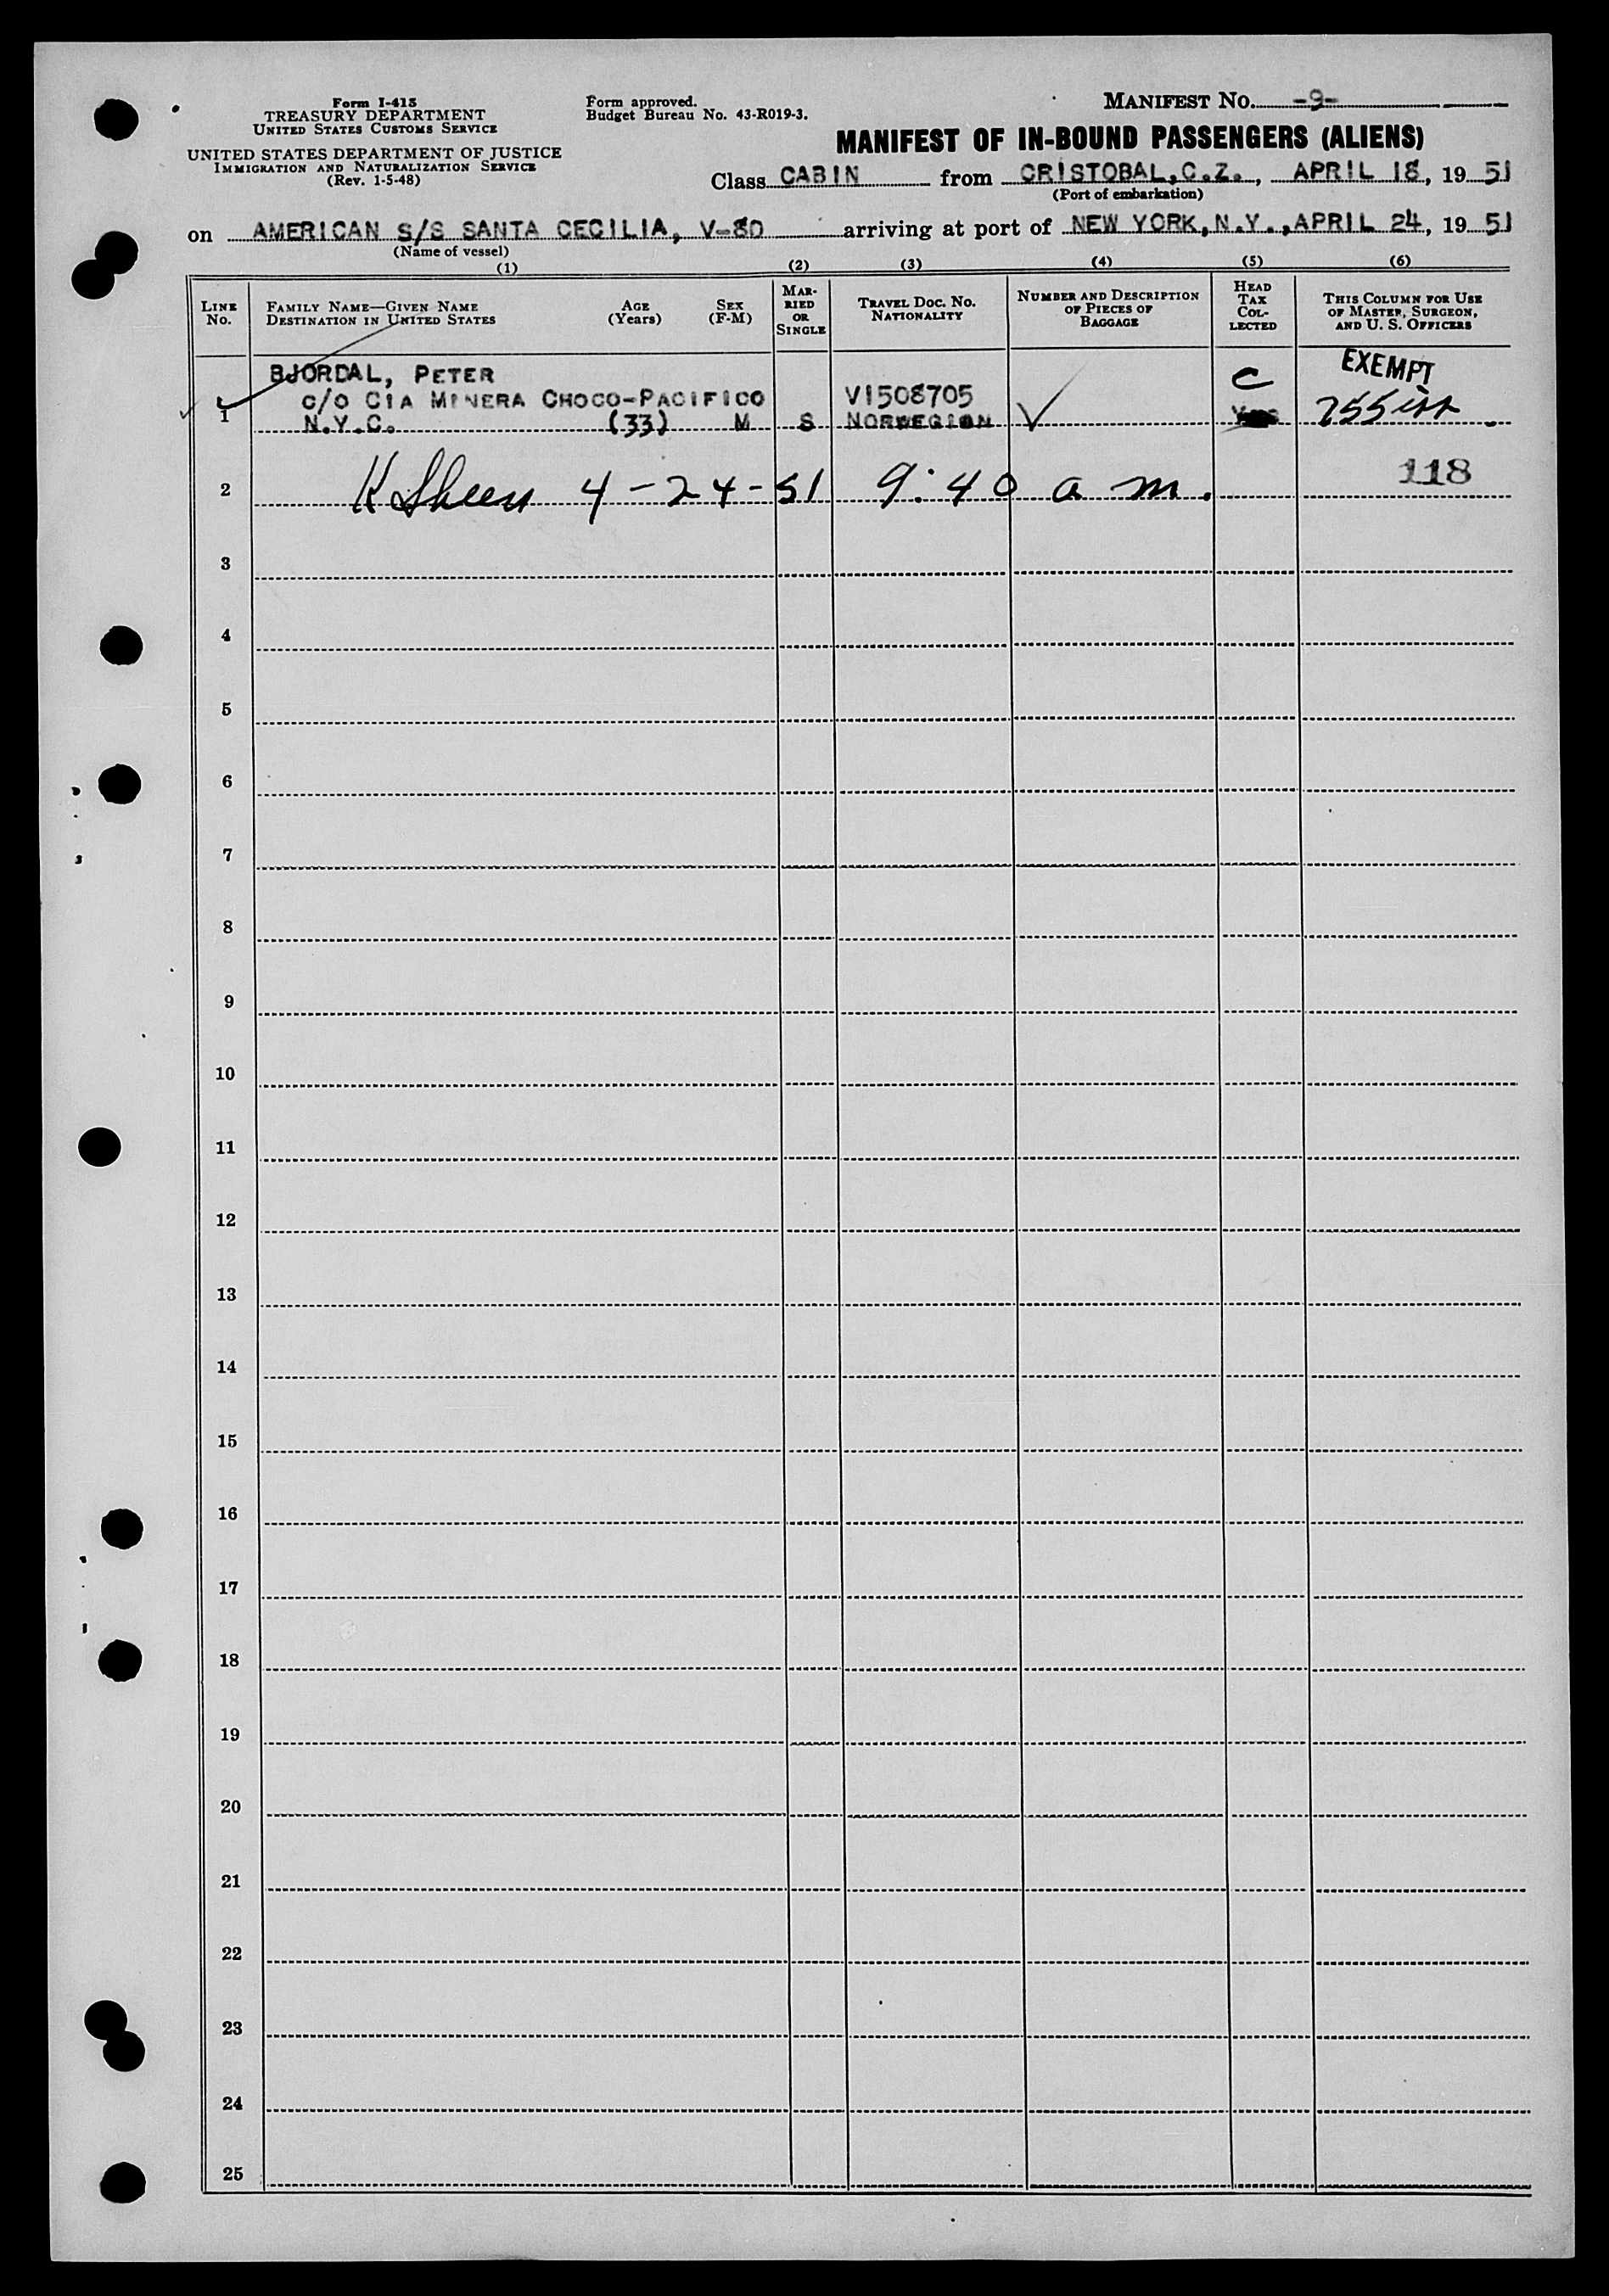 Form I-415
TREASURY DEPARTMENT
UNITED STATES CUSTOMS SERVICE
UNITED STATES DEPARTMENT OF JUSTICE
IMMIGRATION AND NATURALIZATION SERVICE
(Rev. 1-5-48)
Form approved.
Budget Bureau No. 43-R019-3.
MANIFEST NO. -9-
MANIFEST OF IN-BOUND PASSENGERS (ALIENS)
Class CABIN from CRISTOBAL, C.Z., APRIL 18, 19 51
(Port of embarkation)
on AMERICAN S/S SANTA CECILIA, V-80 arriving at port of NEW YORK, N.Y., APRIL 24, 19 51
(Name of vessel)
(1) (2) (3) (4) (5) (6)
LINE NO.
FAMILY NAME—GIVEN NAME
DESTINATION IN UNITED STATES
AGE
(Years)
SEX
(F-M)
MAR-
RIED
OR
SINGLE
TRAVEL DOC. NO.
NATIONALITY
NUMBER AND DESCRIPTION
OF PIECES OF
BAGGAGE
HEAD
TAX
COL-
LECTED
THIS COLUMN FOR USE
OF MASTER, SURGEON,
AND U. S. OFFICERS
BJORDAL, PETER
C/O CIA MINERA CHOCO-PACIFICO V1508705 C EXEMPT
1 N.Y.C. (33) M S NORWEGIAN
2 4-24-51 9:40 a m. 118
3
4
5
6
7
8
9
10
11
12
13
14
15
16
17
18
19
20
21
22
23
24
25